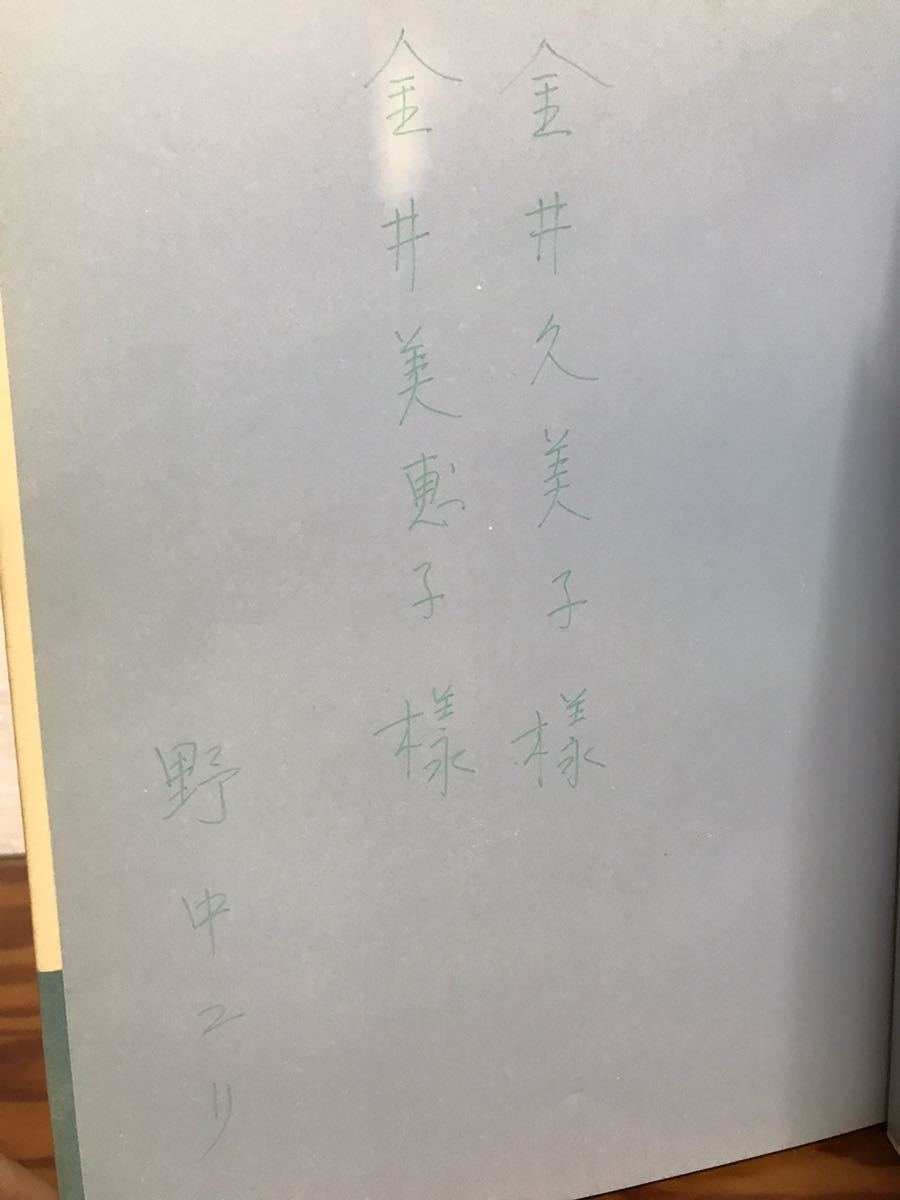 金井久美子様
金井美恵子様
野中ユリ